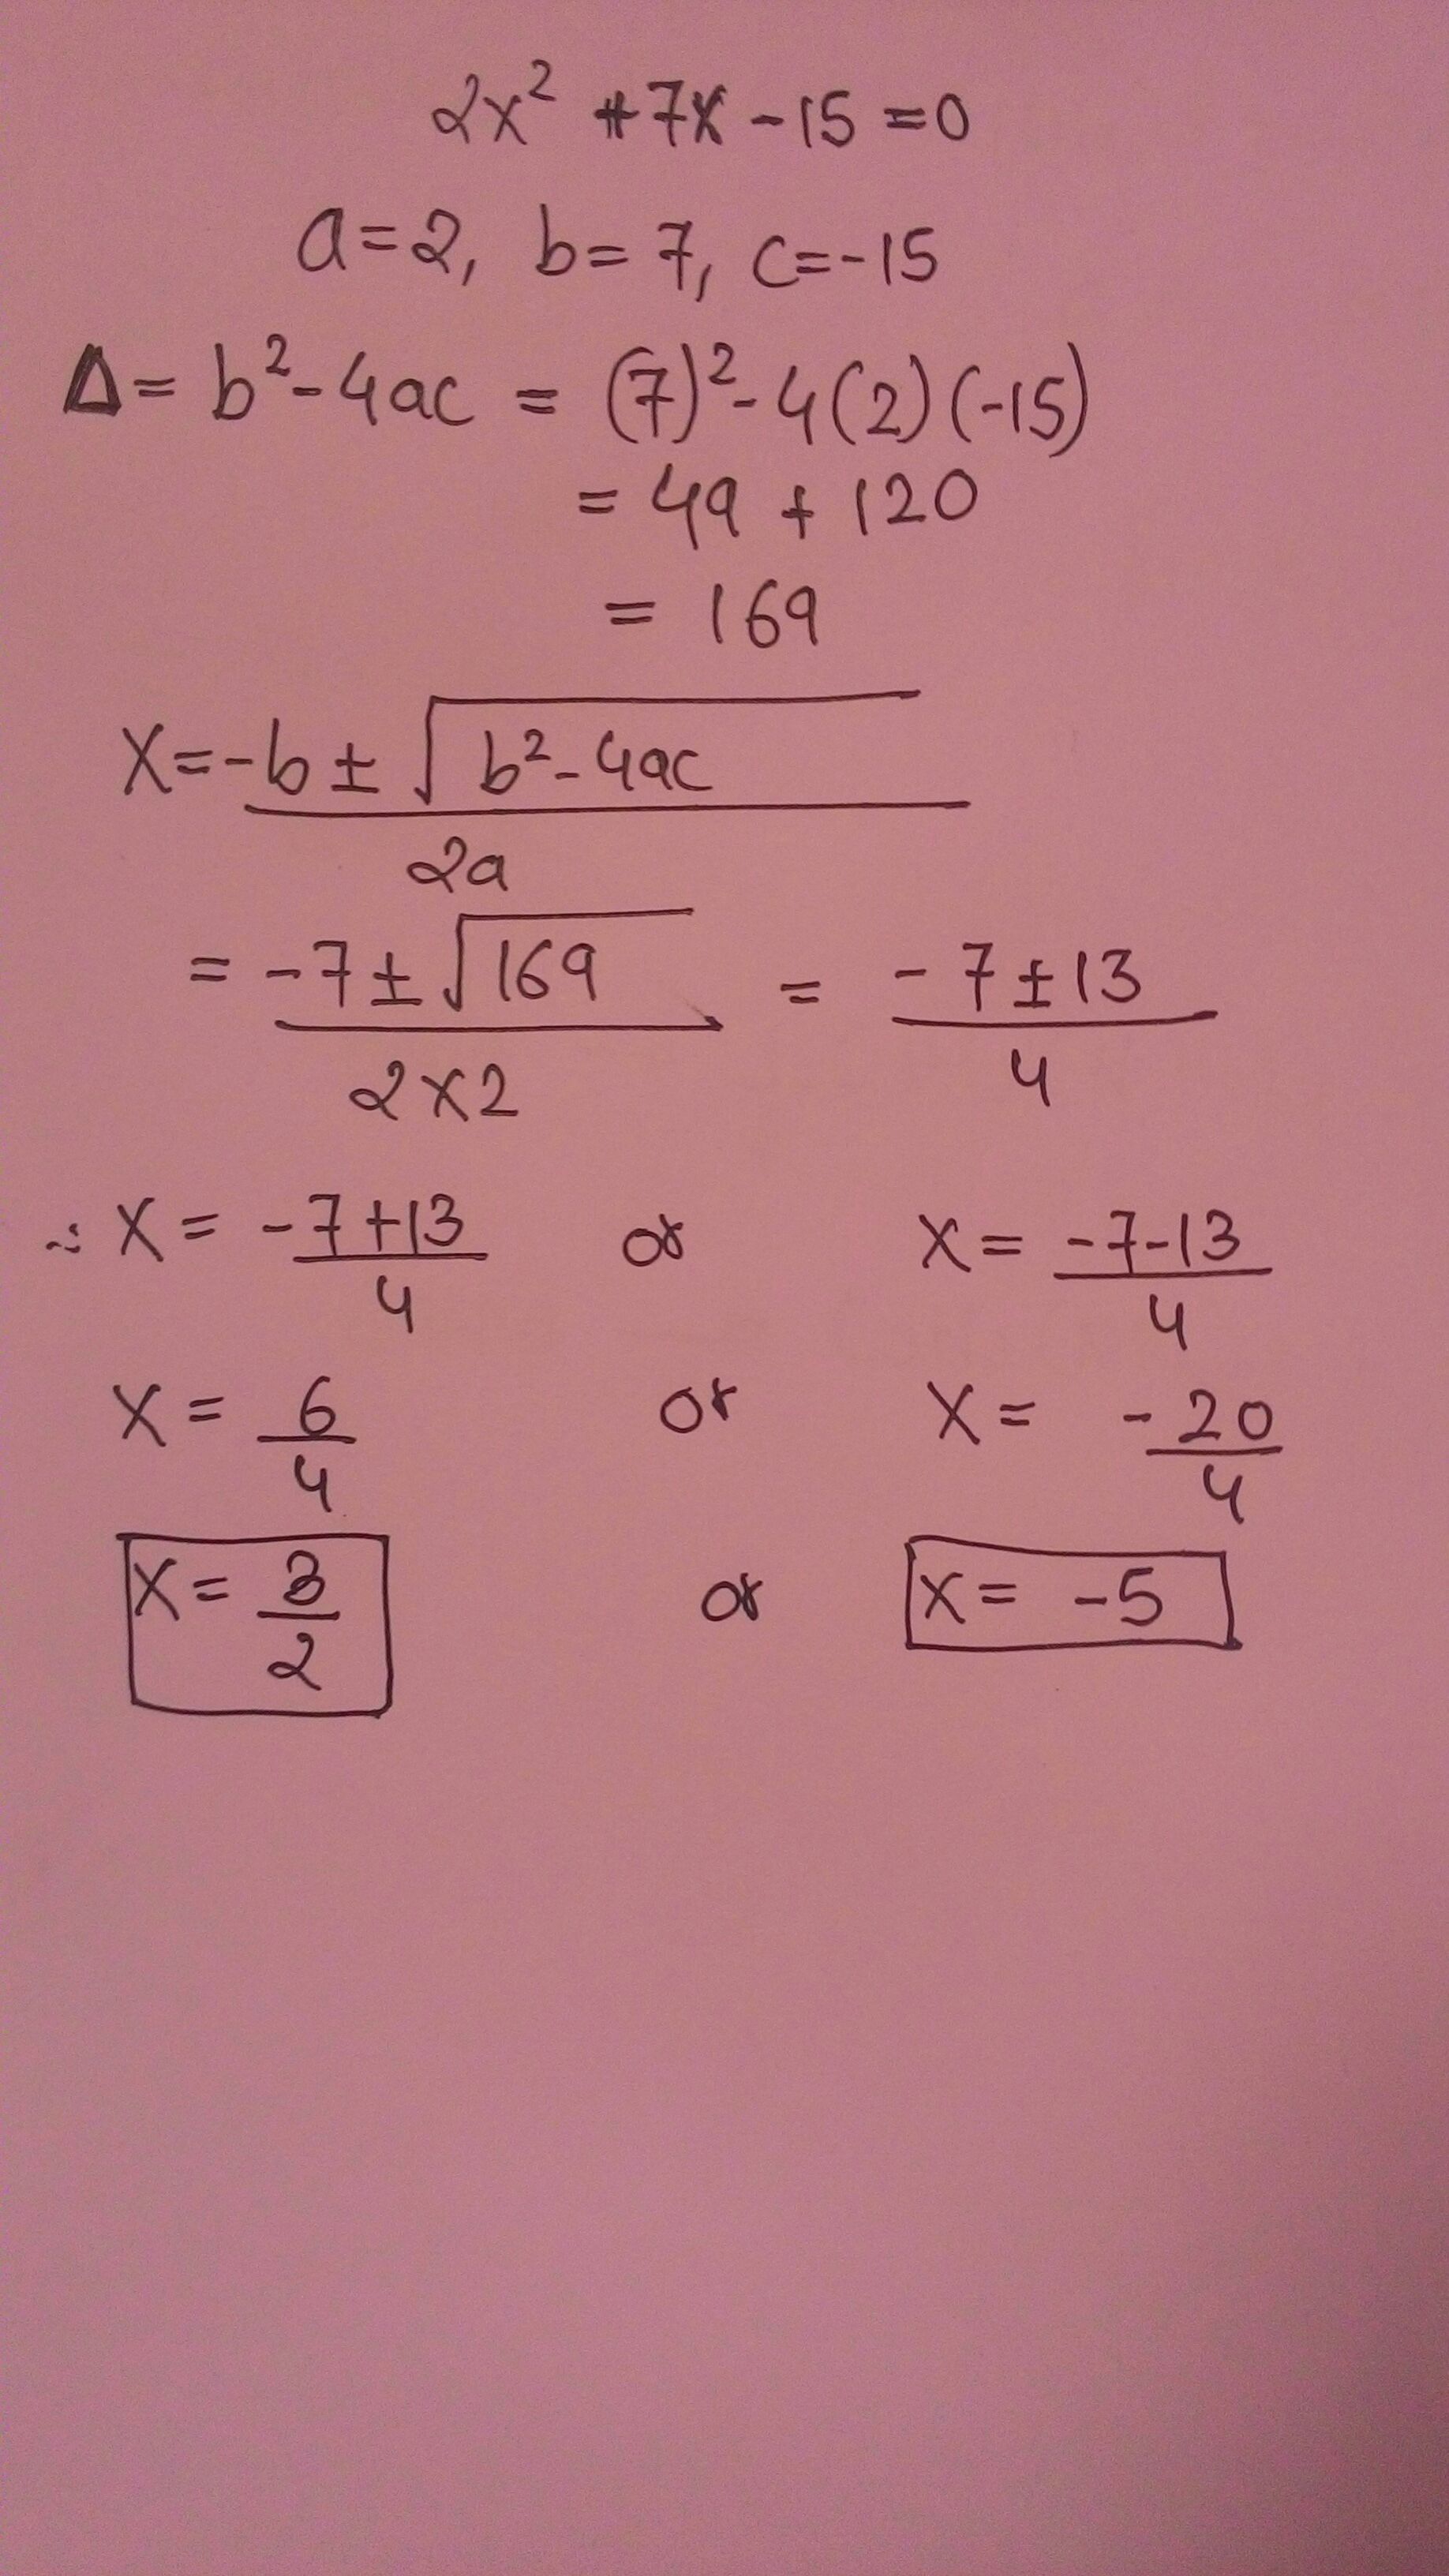 2x² +7x -15 =0
a=2, b=7, c=-15
Δ= b²-4ac = (7)²-4(2)(-15)
= 49 + 120
= 169
X=-b±√b²-4ac
2a
= -7±√169 = -7±13
2×2 4
∴ X= -7+13 or X= -7-13
4 4
X= 6 or X= -20
4 4
X= 3 or X= -5
2